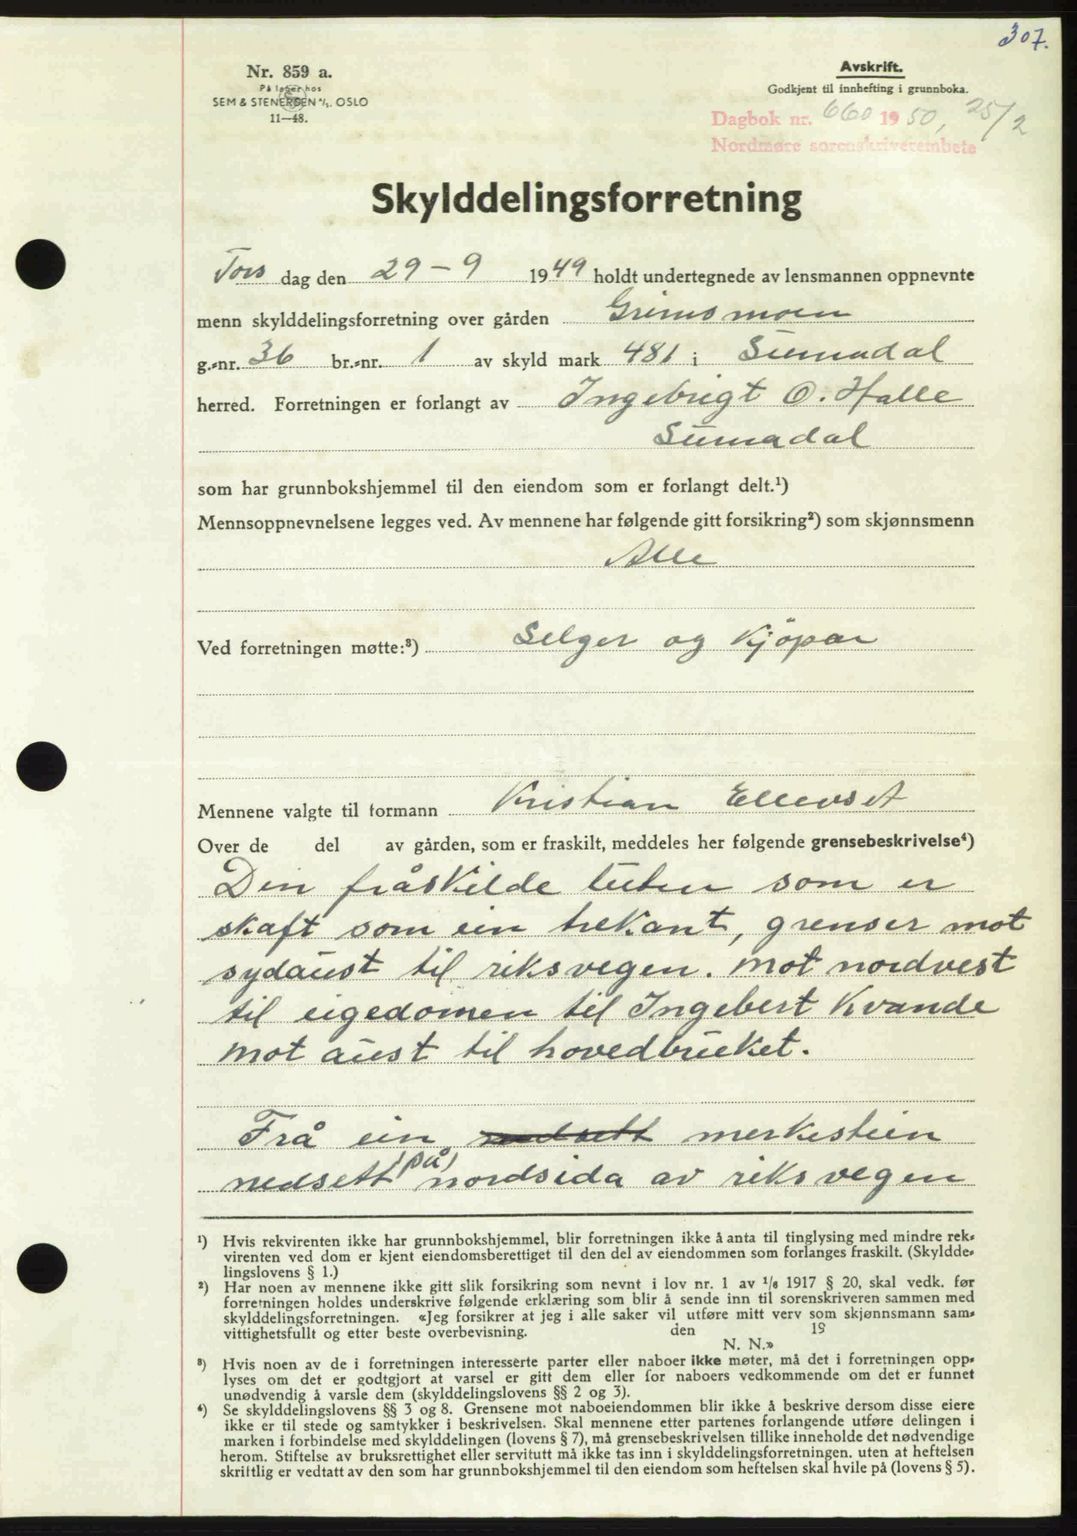 307.
Nr. 859 a.
På lager hos
SEM & STENERSEN A/S. OSLO
11—48.
Avskrift.
Godkjent til innhefting i grunnboka.
Dagbok nr. 660 1950, 25/2
Nordmøre sorenskriverembete
Skylddelingsforretning
Tors dag den 29 – 9 1949 holdt undertegnede av lensmannen oppnevnte
menn skylddelingsforretning over gården Grimsmoen
g.-nr. 36 br.-nr. 1 av skyld mark 481 i Surnadal
herred. Forretningen er forlangt av Ingebrigt O. Halle
Surnadal
som har grunnbokshjemmel til den eiendom som er forlangt delt.¹)
Mennsoppnevnelsene legges ved. Av mennene har følgende gitt forsikring²) som skjønnsmenn
Alle
Ved forretningen møtte:³) Selger og Kjöpar
Mennene valgte til formann Kristian Ellevset
Over de del av gården, som er fraskilt, meddeles her følgende grensebeskrivelse⁴)
Den fråskilde teiten som er
skaft som ein trekant, grenser mot
sydaust til riksvegen. Mot nordvest
til eigedomen til Ingebert Kvande
Mot aust til hovedbruket.
Frå ein nedsett merkestein
nedsett (på) nordsida av riksvegen
¹) Hvis rekvirenten ikke har grunnbokshjemmel, blir forretningen ikke å anta til tinglysing med mindre rek-
virenten ved dom er kjent eiendomsberettiget til den del av eiendommen som forlanges fraskilt. (Skyldde-
lingslovens § 1.)
²) Har noen av mennene ikke gitt slik forsikring som nevnt i lov nr. 1 av 1/6 1917 § 20, skal vedk. før
forretningen holdes underskrive følgende erklæring som blir å sende inn til sorenskriveren sammen med
skylddelingsforretningen. «Jeg forsikrer at jeg i alle saker vil utføre mitt verv som skjønnsmann sam-
vittighetsfullt og etter beste overbevisning. den 19
N. N.»
³) Hvis noen av de i forretningen interesserte parter eller naboer ikke møter, må det i forretningen opp-
lyses om det er godtgjort at varsel er gitt dem eller for naboers vedkommende om det er funnet
unødvendig å varsle dem (skylddelingslovens §§ 2 og 3).
⁴) Se skylddelingslovens §§ 3 og 8. Grensene mot naboeiendommen blir ikke å beskrive dersom disse eiere
ikke er til stede og samtykker i beskrivelsen. Skal mennene etter partenes forlangende utføre delingen i
marken i forbindelse med skylddelingen (lovens § 7), må grensebeskrivelsen tillike inneholde det nødvendige
herom. Stiftelse av bruksrettighet eller servitutt må ikke tas inn i skylddelingsforretningen. uten at heftelsen
skriftlig er vedtatt av den som har grunnbokshjemmel til den eiendom som heftelsen skal hvile på (lovens § 5).